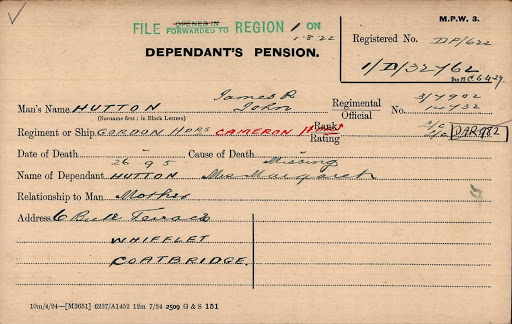 M.P.W. 3.
FILE OPENED IN FORWARDED TO REGION 1 ON
1.8.22
Registered No. DP/622
DEPENDANT'S PENSION.
1/D/32762
James R
Man's Name HUTTON John Regimental Official No. 3/7902
14732
(Surname first: in Block Letters)
Regiment or Ship GORDON HDRS CAMERON Rank Rating
DAR982
Date of Death 26 - 9 5 Cause of Death Missing
Name of Dependant HUTTON Mrs Margaret
Relationship to Man Mother
Address 6 Terrace
WHIFFLET
COATBRIDGE.
10m/4/24—[M3651] 6237/A1452 12m 7/24 2509 G & S 151